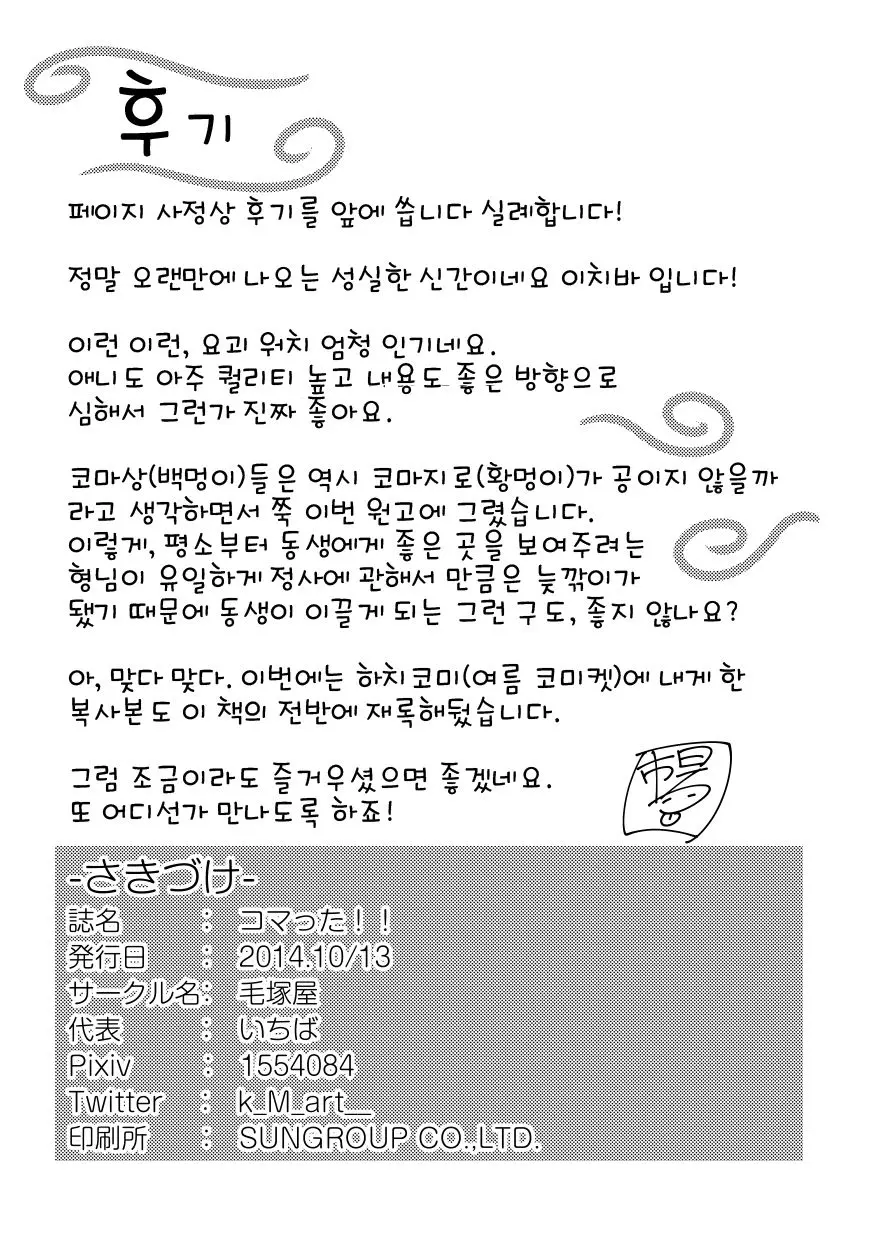 후기
페이지 사정상 후기를 앞에 씁니다 실례합니다!
정말 오랜만에 나오는 성실한 신간이네요 이치바 입니다!
이런 이런, 요괴 워치 엄청 인기네요.
애니도 아주 퀄리티 높고 내용도 좋은 방향으로
심해서 그런가 진짜 좋아요.
코마상(백멍이)들은 역시 코마지로(황멍이)가 공이지 않을까
라고 생각하면서 쭉 이번 원고에 그렸습니다.
이렇게, 평소부터 동생에게 좋은 곳을 보여주려는
형님이 유일하게 정사에 관해서 만큼은 늦깎이가
됐기 때문에 동생이 이끌게 되는 그런 구도, 좋지 않나요?
아, 맞다 맞다. 이번에는 하치코미(여름 코미켓)에 내게 한
복사본도 이 책의 전반에 재록해뒀습니다.
그럼 조금이라도 즐거우셨으면 좋겠네요.
또 어디선가 만나도록 하죠!
-さきづけ-
誌名 : コマった!!
発行日 : 2014.10/13
サークル名: 毛塚屋
代表 : いちば
Pixiv : 1554084
Twitter : k_M_art__
印刷所 : SUNGROUP CO.,LTD.